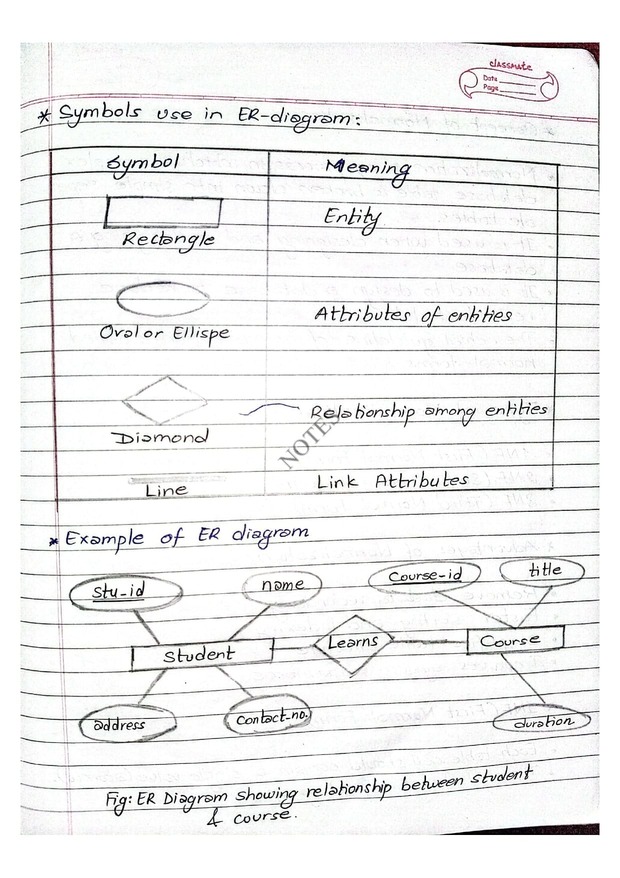 classmate
Date
Page
* Symbols use in ER-diagram:
Symbol Meaning
Rectangle Entity
Oval or Ellispe Attributes of entities
Diamond Relationship among entities
NOTES
Line Link Attributes
* Example of ER diagram
Stu-id name Course-id title
Student Learns Course
address Contact-no. duration
Fig: ER Diagram showing relationship between student
& course.